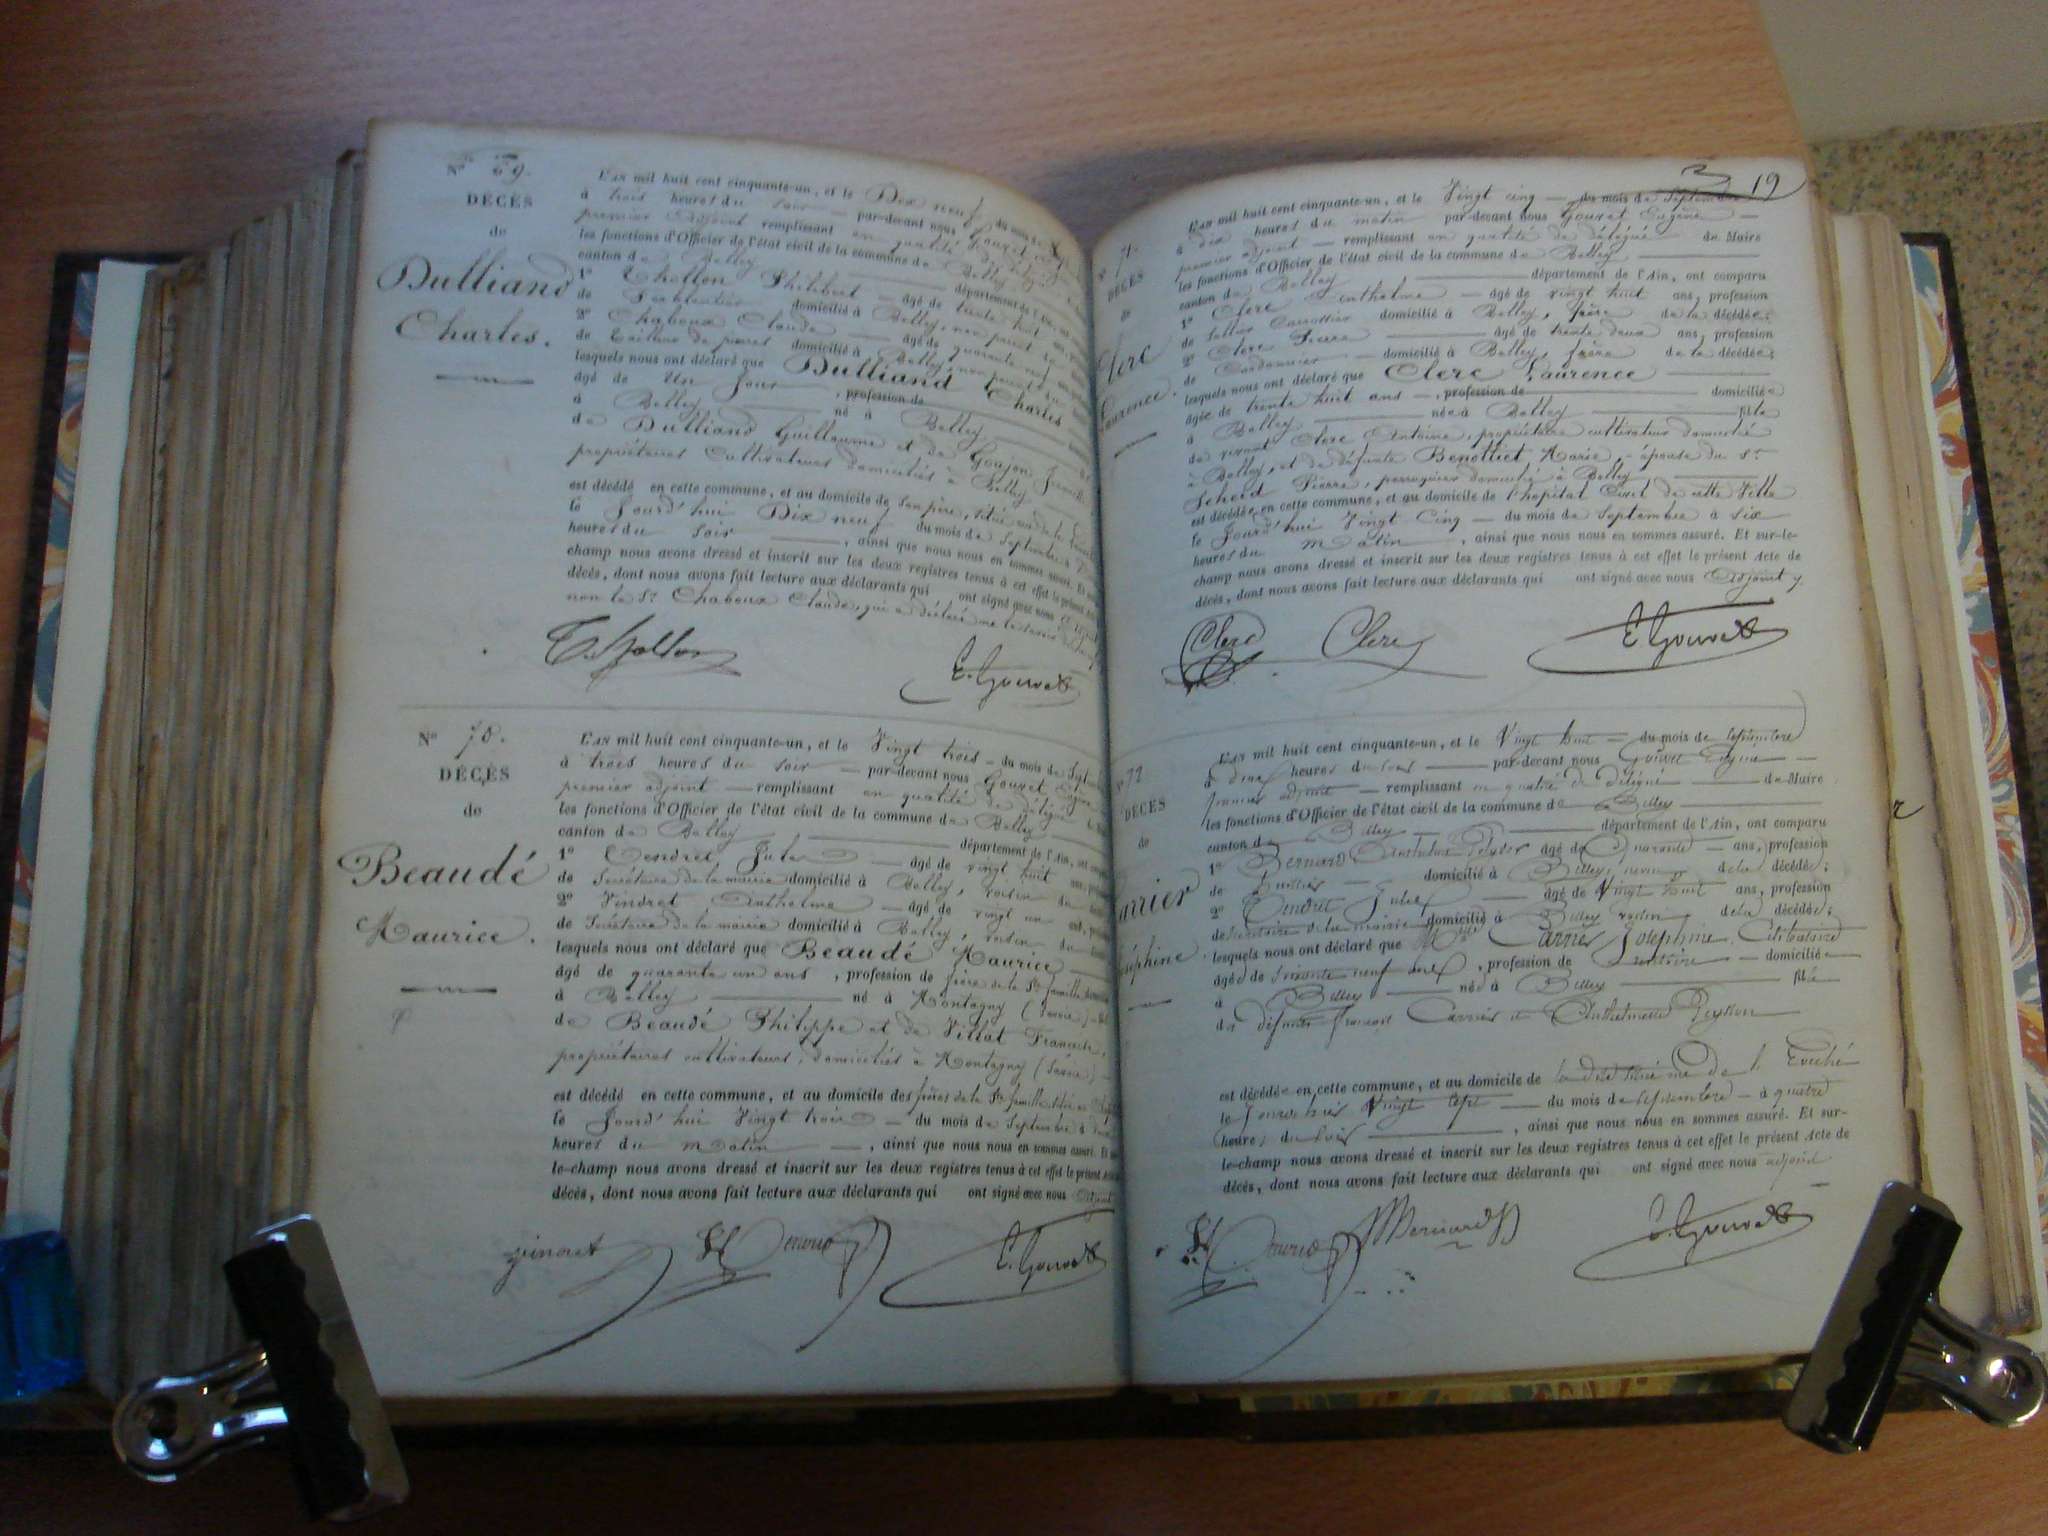 No 69.
DÉCÈS
de
Dulliand
Charles.
L'AN mil huit cent cinquante-un, et le Dix neuf du mois de
à trois heures du soir par-devant nous Gouvet
premier adjoint remplissant en qualité de délégué
les fonctions d'Officier de l'état civil de la commune de Belley
canton de Belley département de l'Ain,
1° Thollon Philibert âgé de trente huit
de Ferblantier domicilié à Belley, non parent
2° Chaboux Claude âgé de quarante neuf
de Tailleur de pierres domicilié à Belley, non parent du
lesquels nous ont déclaré que Dulliand Charles
âgé de Un Jour , profession de
à Belley né à Belley
de Dulliand Guillaume et de Goujon
propriétaires Cultivateurs domiciliés à Belley
est décédé en cette commune, et au domicile de son père, situé
le Jourd'hui Dix neuf du mois de Septembre à
heures du soir , ainsi que nous nous en sommes assuré. Et
champ nous avons dressé et inscrit sur les deux registres tenus à cet effet le présent
décès, dont nous avons fait lecture aux déclarants qui ont signé avec nous
non le Sr Chaboux Claude, qui a déclaré ne le savoir
Thollon E. Gouvet
No 70.
DÉCÈS
de
Beaudé
Maurice.
L'AN mil huit cent cinquante-un, et le Vingt trois du mois de
à trois heures du soir par-devant nous Gouvet
premier adjoint remplissant en qualité de délégué
les fonctions d'Officier de l'état civil de la commune de Belley
canton de Belley département de l'Ain,
1° Tendret Jules âgé de vingt huit
de Secrétaire de la mairie domicilié à Belley, voisin
2° Vindret Anthelme âgé de vingt un
de Secrétaire de la mairie domicilié à Belley, voisin
lesquels nous ont déclaré que Beaudé Maurice
âgé de quarante un ans , profession de frère de la Ste famille
à Belley né à Montagny (Savoie)
de Beaudé Philippe et de Villat
propriétaires cultivateurs, domiciliés à Montagny (Savoie)
est décédé en cette commune, et au domicile des frères de la Ste famille
le Jourd'hui Vingt trois du mois de Septembre à
heures du matin , ainsi que nous nous en sommes assuré. Et
le-champ nous avons dressé et inscrit sur les deux registres tenus à cet effet le présent
décès, dont nous avons fait lecture aux déclarants qui ont signé avec nous
E. Gouvet
19
71.
DÉCÈS
de
Clerc
Laurence.
L'AN mil huit cent cinquante-un, et le Vingt cinq du mois de Septembre
à dix heures du matin par-devant nous Gouvet Eugène
premier adjoint remplissant en qualité de délégué du Maire
les fonctions d'Officier de l'état civil de la commune de Belley
canton de Belley département de l'Ain, ont comparu
1° Clerc Anthelme âgé de vingt huit ans, profession
de Sellier Carrossier domicilié à Belley, frère de la décédée;
2° Clerc Pierre âgé de trente deux ans, profession
de Cordonnier domicilié à Belley, frère de la décédée;
lesquels nous ont déclaré que Clerc Laurence
âgée de trente huit ans , profession de domiciliée
à Belley née à Belley fille
de vivant Clerc Antoine, propriétaire cultivateur domicilié
à Belley, et de défunte Benottiet Marie, épouse du Sr
Scheid Pierre, perruquier domicilié à Belley
est décédée en cette commune, et au domicile de l'hopital Civil de cette Ville
le Jourd'hui Vingt Cinq du mois de Septembre à six
heures du matin , ainsi que nous nous en sommes assuré. Et sur-le-
champ nous avons dressé et inscrit sur les deux registres tenus à cet effet le présent Acte de
décès, dont nous avons fait lecture aux déclarants qui ont signé avec nous Adjoint
Clerc Clerc E. Gouvet
72
DÉCÈS
de
L'AN mil huit cent cinquante-un, et le Vingt huit du mois de septembre
à deux heures du soir par-devant nous Gouvet Eugène
premier adjoint remplissant en qualité de délégué de Maire
les fonctions d'Officier de l'état civil de la commune de Belley
canton de Belley département de l'Ain, ont comparu
1° Bernard âgé de Quarante ans, profession
de domicilié à Belley, de la décédée;
2° Tendret Jules âgé de Vingt huit ans, profession
de secrétaire de la mairie domicilié à Belley voisin de la décédée;
lesquels nous ont déclaré que Melle Carrier Joséphine, Célibataire
âgée de soixante neuf ans , profession de rentière domiciliée
à Belley née à Belley fille
de défunts François Carrier et Anthelmette Peysson
est décédée en cette commune, et au domicile de
le Vingt sept du mois de septembre à quatre
heures du soir , ainsi que nous nous en sommes assuré. Et sur-
le-champ nous avons dressé et inscrit sur les deux registres tenus à cet effet le présent Acte de
décès, dont nous avons fait lecture aux déclarants qui ont signé avec nous adjoint
Bernard E. Gouvet